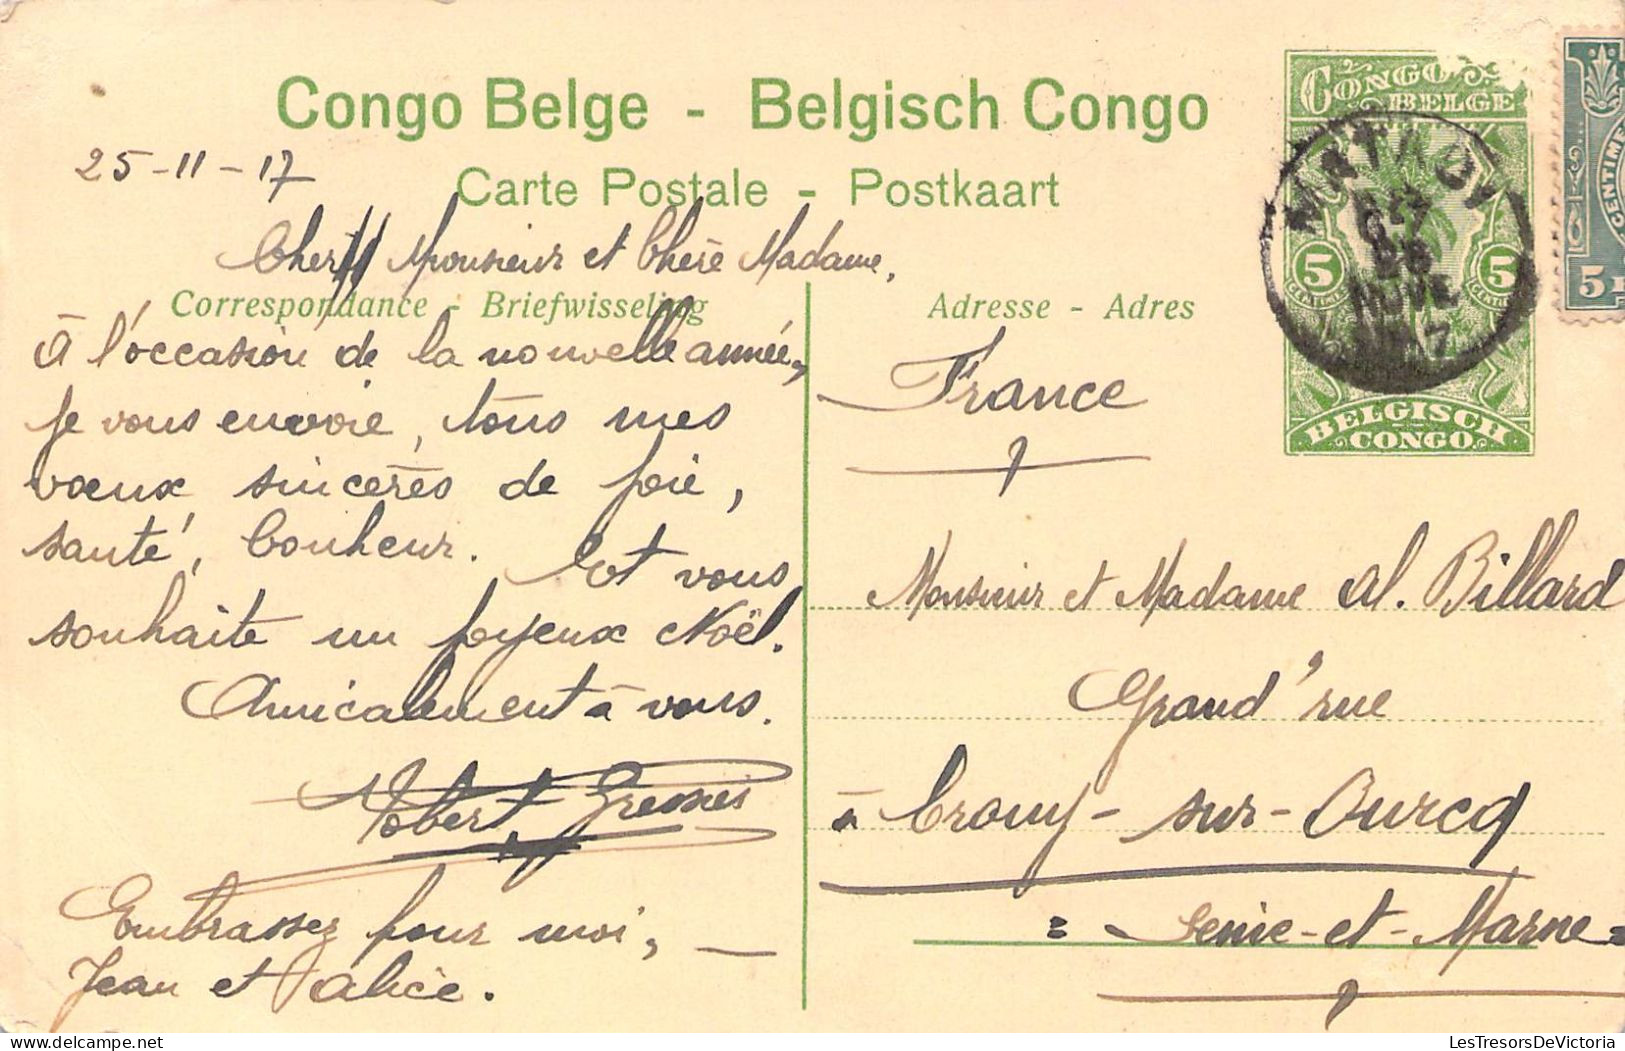 Congo Belge - Belgisch Congo
25-11-17
Carte Postale - Postkaart
Cher Monsieur et Chère Madame,
Correspondance - Briefwisseling
À l'occasion de la nouvelle année,
je vous envoie, tous mes
voeux sincères de joie,
santé, bonheur. Et vous
souhaite un joyeux Noël.
Amicalement à vous.
Robert
Embrassez pour moi,
Jean et Alice.
Adresse - Adres
France
Monsieur et Madame Al. Billard
Grand'rue
à Crouy-sur-Ourcq
= Seine-et-Marne =
CONGO
BELGE
5 5
BELGISCH
CONGO
MATADI
26
NOVE
5
LesTresorsDeVictoria.com